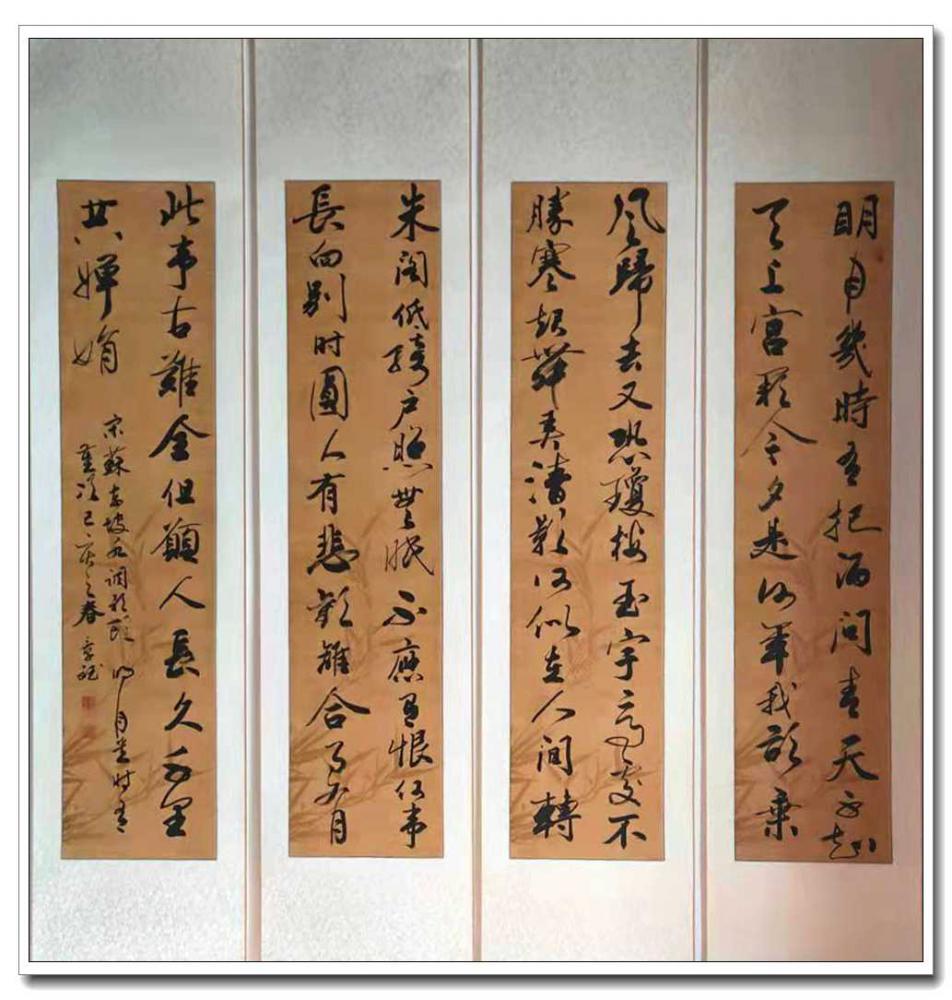 明月幾時有把酒問青天不知
天上宮闕今夕是何年我欲乘
風歸去又恐瓊樓玉宇高處不
勝寒起舞弄清影何似在人間轉
朱閣低綺戶照無眠不應有恨何事
長向别时圓人有悲歡離合月
此事古難全但願人長久千里
共嬋娟
宋蘇東坡水調歌頭明月幾时有
之春